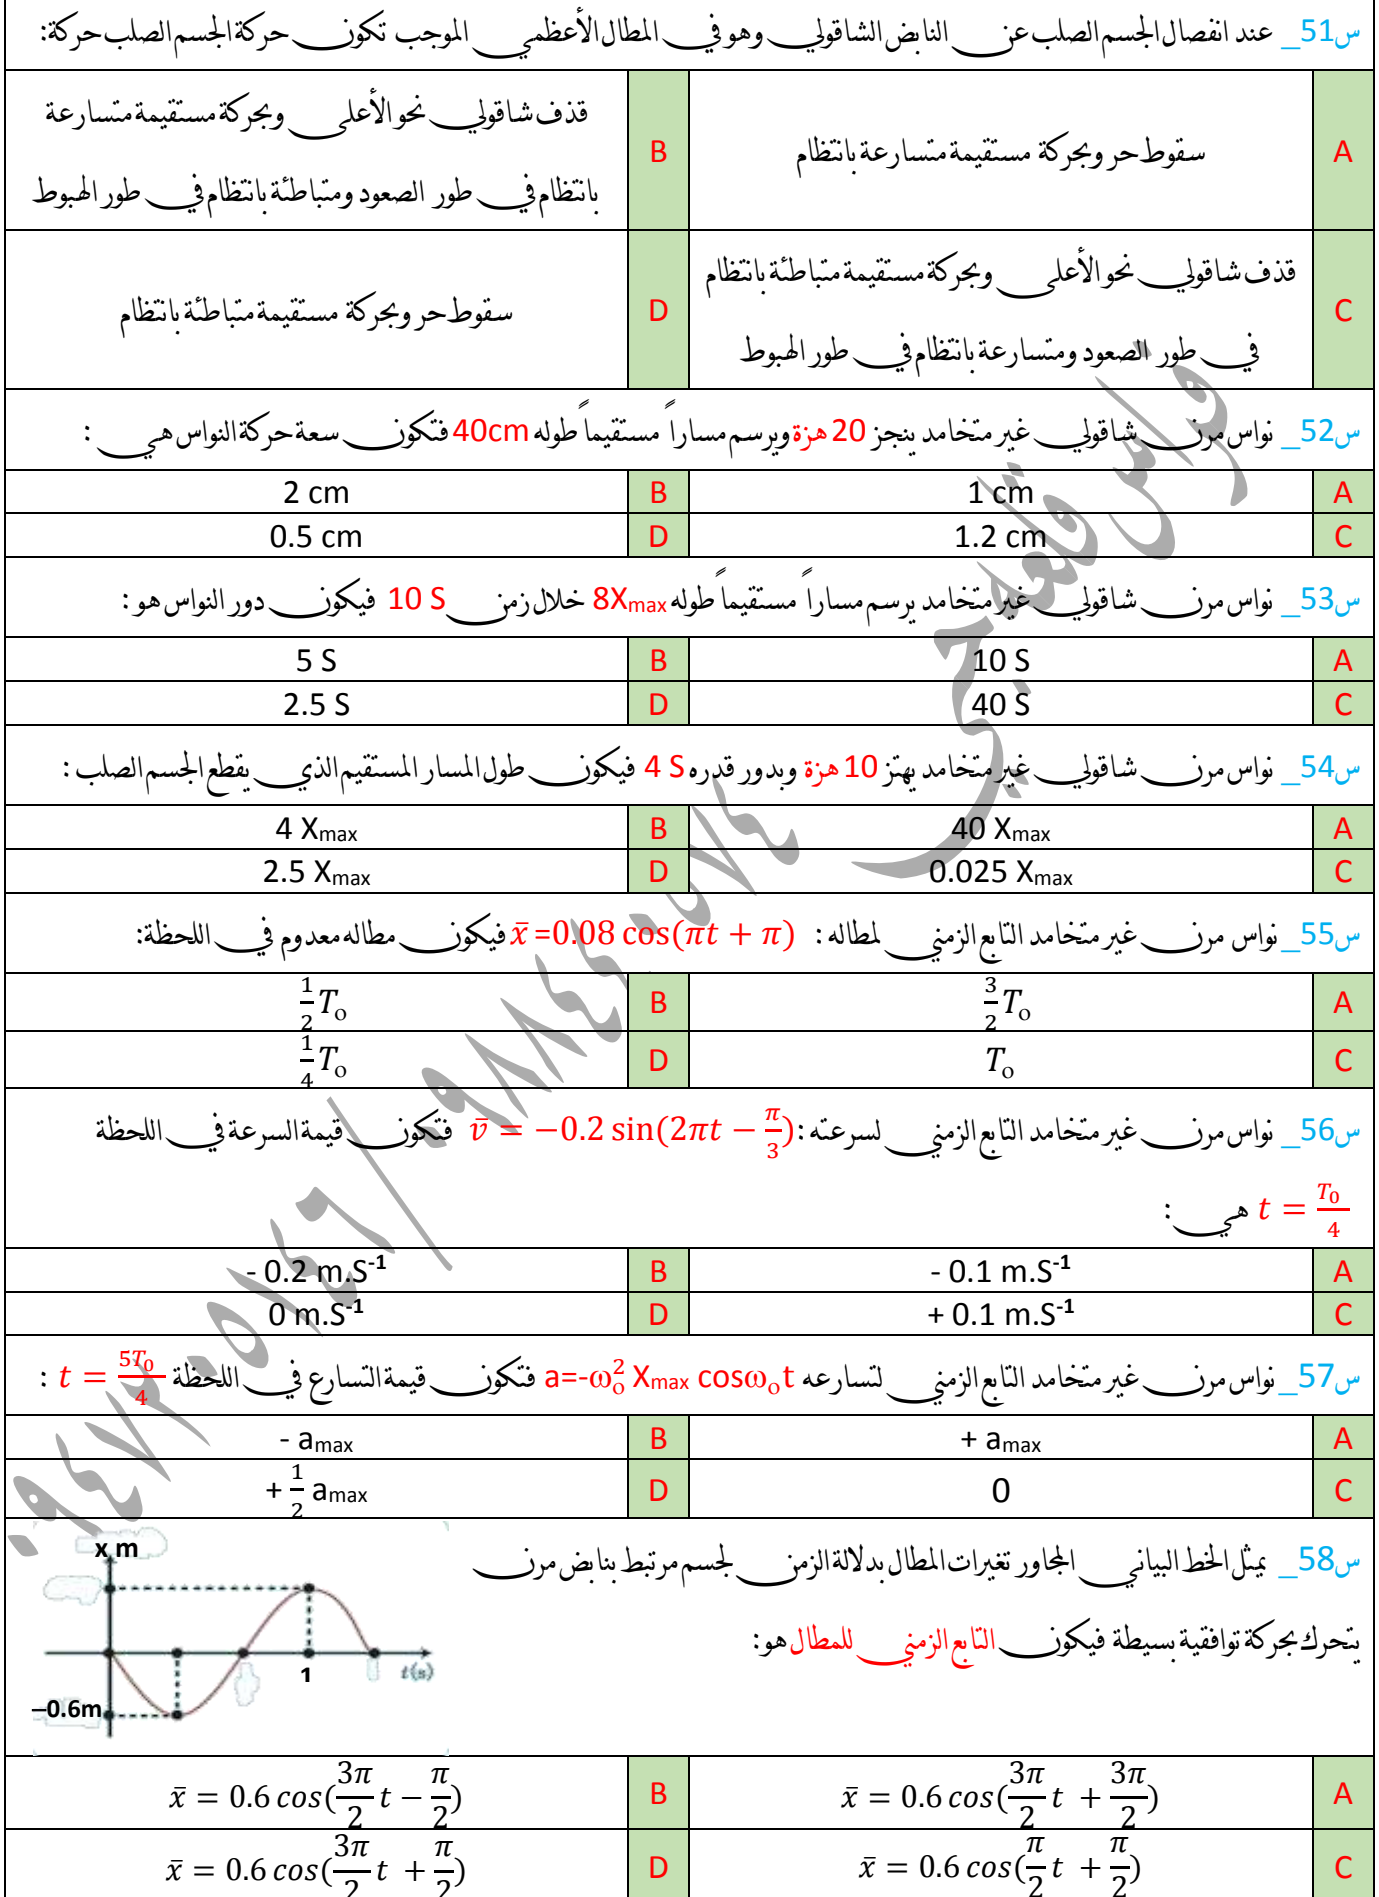 س51_ عند انفصال الجسم الصلب عن النابض الشاقولي وهو في المطال الأعظمي الموجب تكون حركة الجسم الصلب حركة:
A سقوط حر وبحركة مستقيمة متسارعة بانتظام
B قذف شاقولي نحو الأعلى وبحركة مستقيمة متسارعة
بانتظام في طور الصعود ومتباطئة بانتظام في طور الهبوط
C قذف شاقولي نحو الأعلى وبحركة مستقيمة متباطئة بانتظام
في طور الصعود ومتسارعة بانتظام في طور الهبوط
D سقوط حر وبحركة مستقيمة متباطئة بانتظام
س52_ نواس مرن شاقولي غير متخامد ينجز 20 هزة ويرسم مساراً مستقيماً طوله 40cm فتكون سعة حركة النواس هي :
A 1 cm
B 2 cm
C 1.2 cm
D 0.5 cm
س53_ نواس مرن شاقولي غير متخامد يرسم مساراً مستقيماً طوله 8Xmax خلال زمن 10 S فيكون دور النواس هو :
A 10 S
B 5 S
C 40 S
D 2.5 S
س54_ نواس مرن شاقولي غير متخامد يهتز 10 هزة وبدور قدره 4 S فيكون طول المسار المستقيم الذي يقطع الجسم الصلب :
A 40 Xmax
B 4 Xmax
C 0.025 Xmax
D 2.5 Xmax
س55_ نواس مرن غير متخامد التابع الزمني لمطاله : x̄=0.08 cos(πt + π) فيكون مطاله معدوم في اللحظة:
A 3/2 To
B 1/2 To
C To
D 1/4 To
س56_ نواس مرن غير متخامد التابع الزمني لسرعته : v̄ = −0.2 sin(2πt − π/3) فتكون قيمة السرعة في اللحظة
t = T0/4 هي :
A - 0.1 m.S⁻¹
B - 0.2 m.S⁻¹
C + 0.1 m.S⁻¹
D 0 m.S⁻¹
س57_ نواس مرن غير متخامد التابع الزمني لتسارعه a=-ωo² Xmax cosωot فتكون قيمة التسارع في اللحظة t = 5T0/4 :
A + amax
B - amax
C 0
D + 1/2 amax
س58_ يمثل الخط البياني المجاور تغيرات المطال بدلالة الزمن لجسم مرتبط بنابض مرن
يتحرك بحركة توافقية بسيطة فيكون التابع الزمني للمطال هو:
x m
1
t(s)
−0.6m
A x̄ = 0.6 cos(3π/2 t + 3π/2)
B x̄ = 0.6 cos(3π/2 t − π/2)
C x̄ = 0.6 cos(π/2 t + π/2)
D x̄ = 0.6 cos(3π/2 t + π/2)
فراس قلعه جي